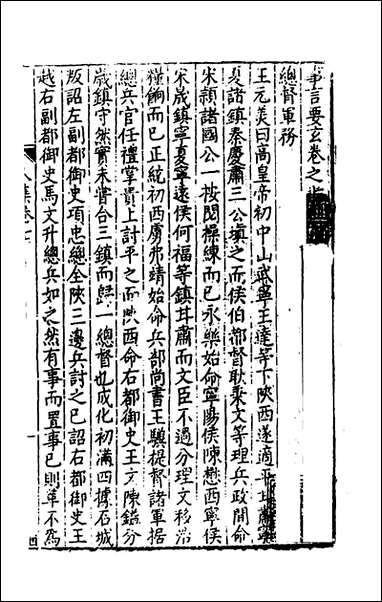 事言要玄卷之
總督軍務
王元美曰高皇帝初中山武寧王達等下陝西遂適平甘肅寧
夏諸鎮秦慶肅三公填之而侯伯都督耿秉文等理兵政間命
宋潁諸國公一按閱操練而已永樂始命寧陽侯陳懋西寧侯
宋晟鎮寧夏寧遠侯何福等鎮甘肅而文臣不過分理文移給
糧餉而已正統初西虜弗靖始命兵部尚書王驥提督諸軍據
總兵官任禮掌貴上討平之而陝西命右都御史王文陳鎰分
歲鎮守然實未嘗合三鎮而歸一總督也成化初滿四據石城
叛詔左副都御史項忠總全陝三邊兵討之已詔右都御史王
越右副都御史馬文升總兵如之然有事而置事已則革不爲